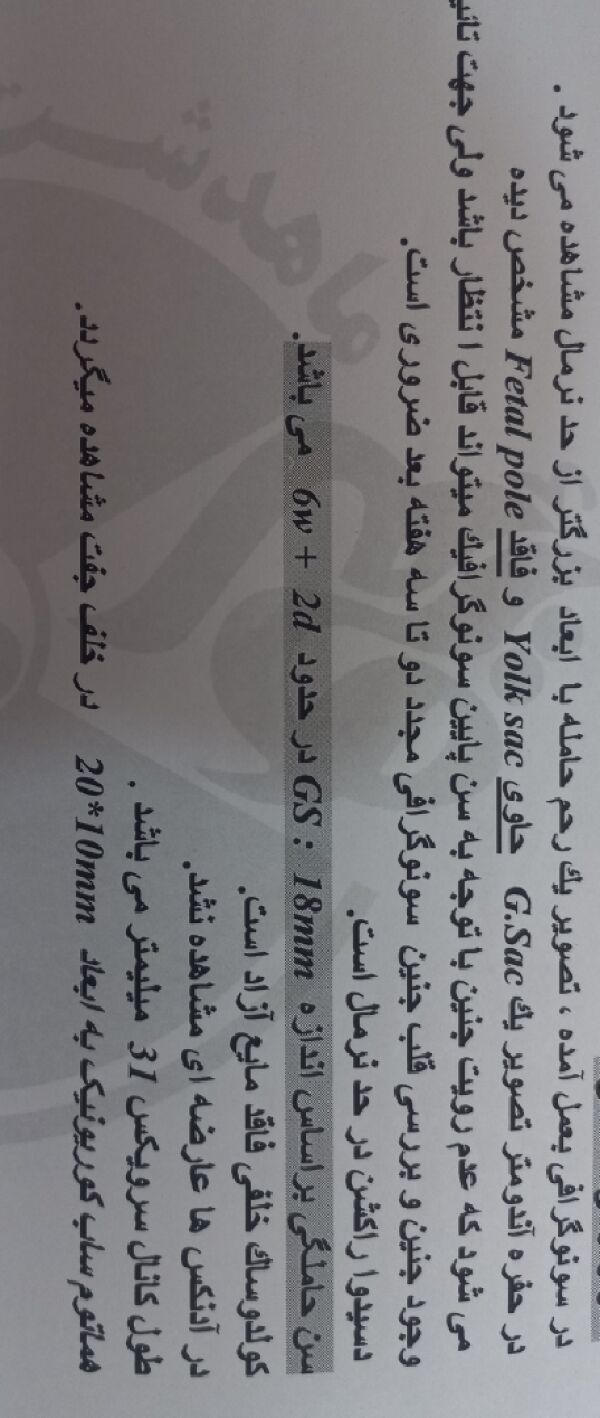 در سونوگرافی بعمل آمده ، تصویر یك رحم حامله با ابعاد بزرگتر از حد نرمال مشاهده می شود .
در حفره آندومتر تصویر یك G.Sac حاوی Yolk sac و فاقد Fetal pole مشخص دیده
می شود که عدم رویت جنین با توجه به سن پایین سونوگرافیك میتواند قابل انتظار باشد ولی جهت
وجود جنین و بررسی قلب جنین سونوگرافی مجدد دو تا سه هفته بعد ضروری است.
دسیدوا راکشن در حد نرمال است.
سن حاملگی براساس اندازه GS : 18mm در حدود 6w + 2d می باشد.
کولدوساك خلفی فاقد مایع آزاد است.
در آدنکس ها عارضه ای مشاهده نشد.
طول کانال سرویکس 31 میلیمتر می باشد .
هماتوم ساب کوریونیک به ابعاد 20*10mm در خلف جفت مشاهده میگردد.
ماهدشت